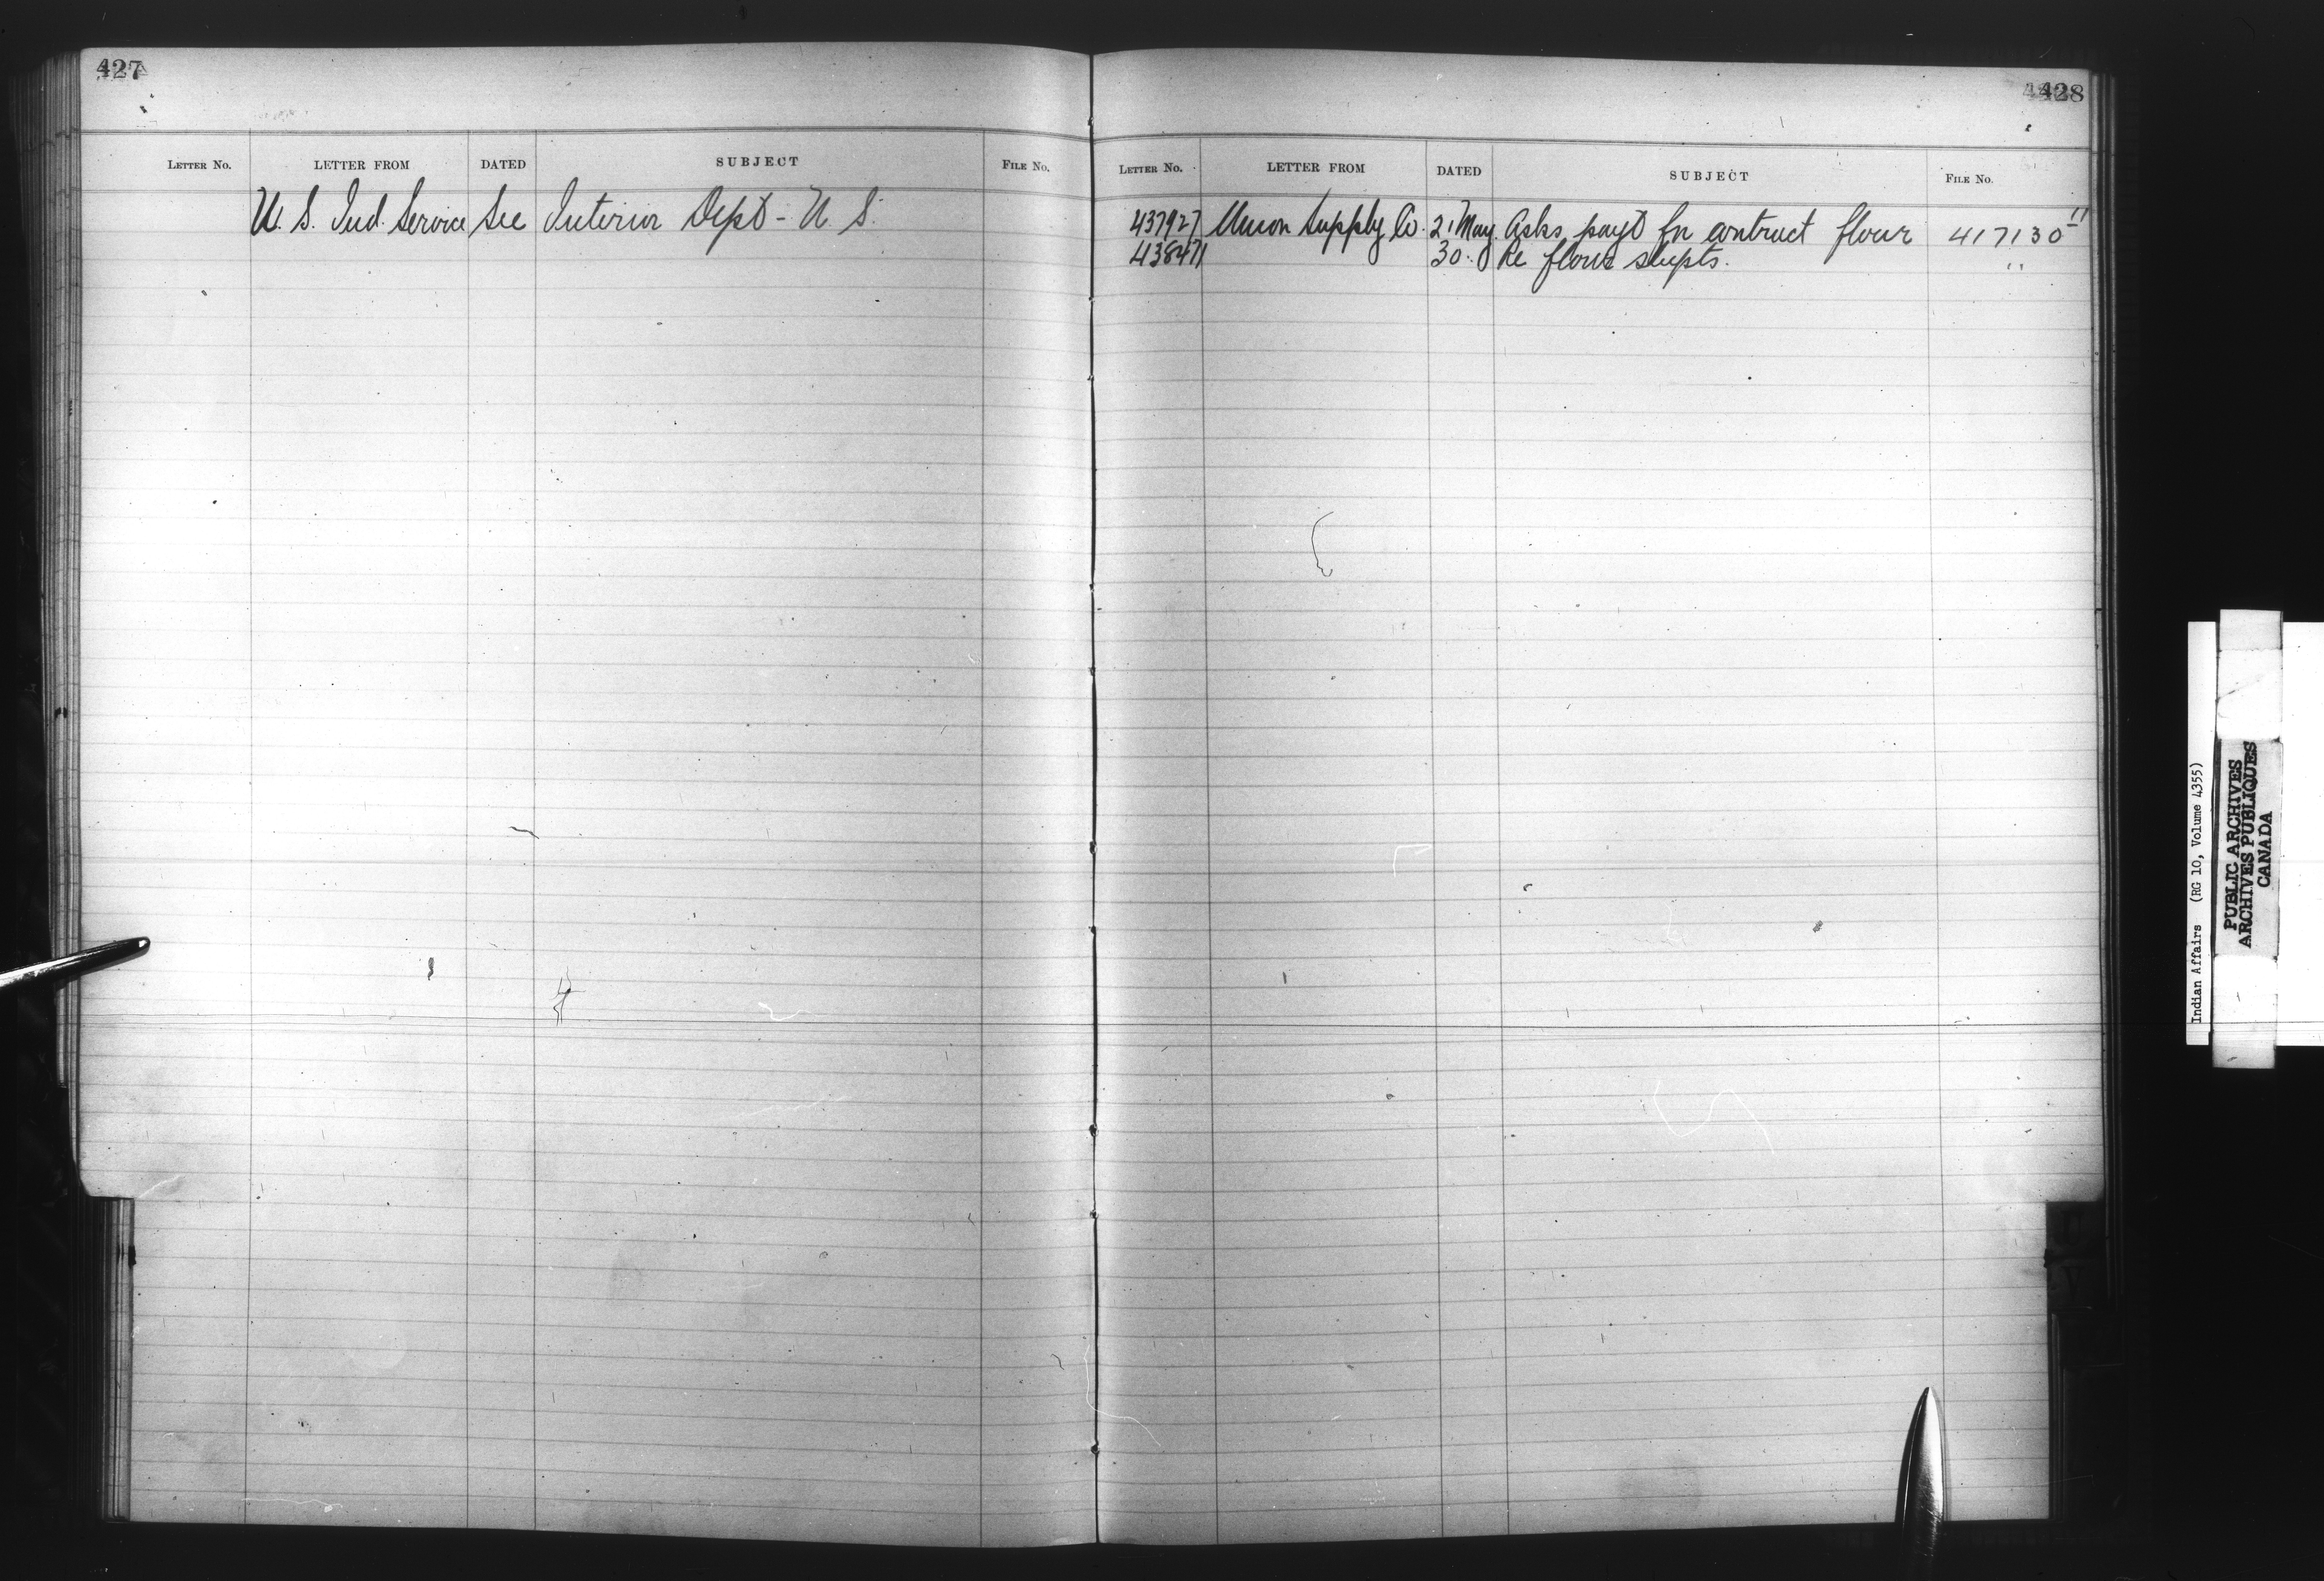 427
LETTER No. LETTER FROM DATED SUBJECT FILE No.
U. S. Ind. Service See Interior Dept - U. S.
428
LETTER No. LETTER FROM DATED SUBJECT FILE No.
437927 Union Supply Co. 21 May. Asks payt for contract flour 417130 11
438471 30. Re flour shipts. "
U
V
Indian Affairs (RG 10, Volume 4355)
PUBLIC ARCHIVES
ARCHIVES PUBLIQUES
CANADA